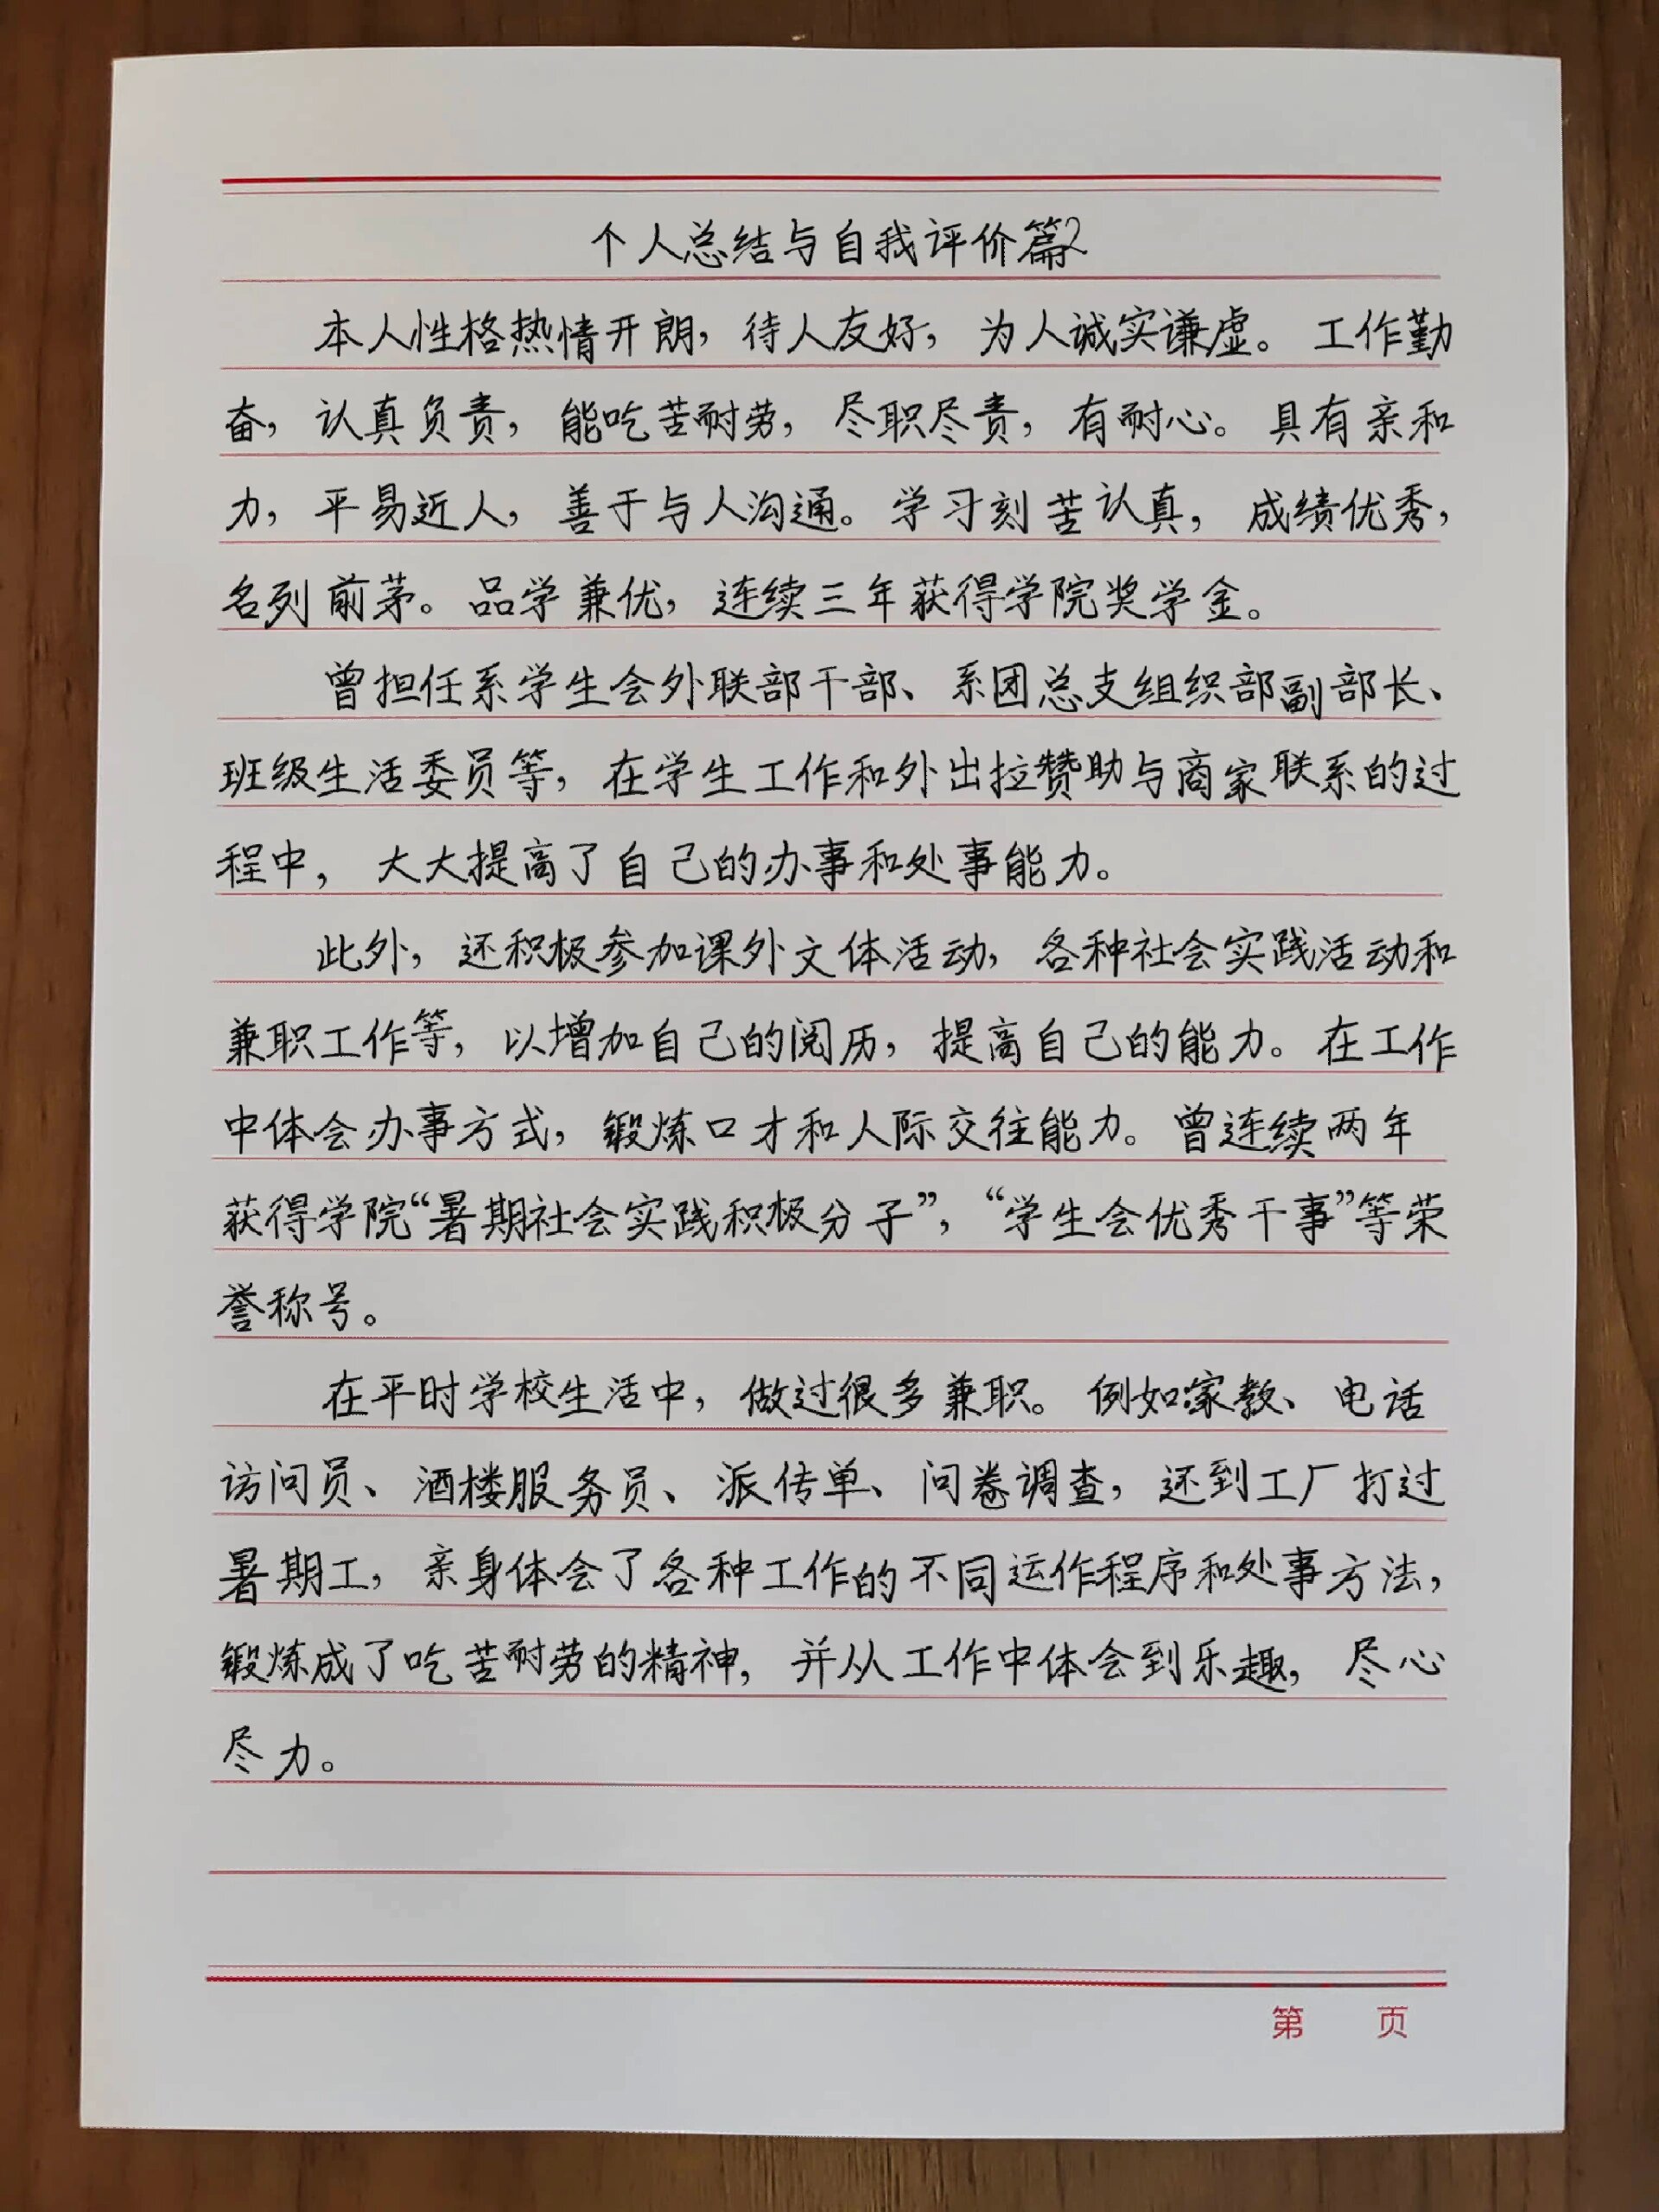 个人总结与自我评价篇2
本人性格热情开朗，待人友好，为人诚实谦虚。工作勤
奋，认真负责，能吃苦耐劳，尽职尽责，有耐心。具有亲和
力，平易近人，善于与人沟通。学习刻苦认真，成绩优秀，
名列前茅。品学兼优，连续三年获得学院奖学金。
曾担任系学生会外联部干部、系团总支组织部副部长、
班级生活委员等，在学生工作和外出拉赞助与商家联系的过
程中，大大提高了自己的办事和处事能力。
此外，还积极参加课外文体活动，各种社会实践活动和
兼职工作等，以增加自己的阅历，提高自己的能力。在工作
中体会办事方式，锻炼口才和人际交往能力。曾连续两年
获得学院“暑期社会实践积极分子”，“学生会优秀干事”等荣
誉称号。
在平时学校生活中，做过很多兼职。例如家教、电话
访问员、酒楼服务员、派传单、问卷调查，还到工厂打过
暑期工，亲身体会了各种工作的不同运作程序和处事方法，
锻炼成了吃苦耐劳的精神，并从工作中体会到乐趣，尽心
尽力。
第 页